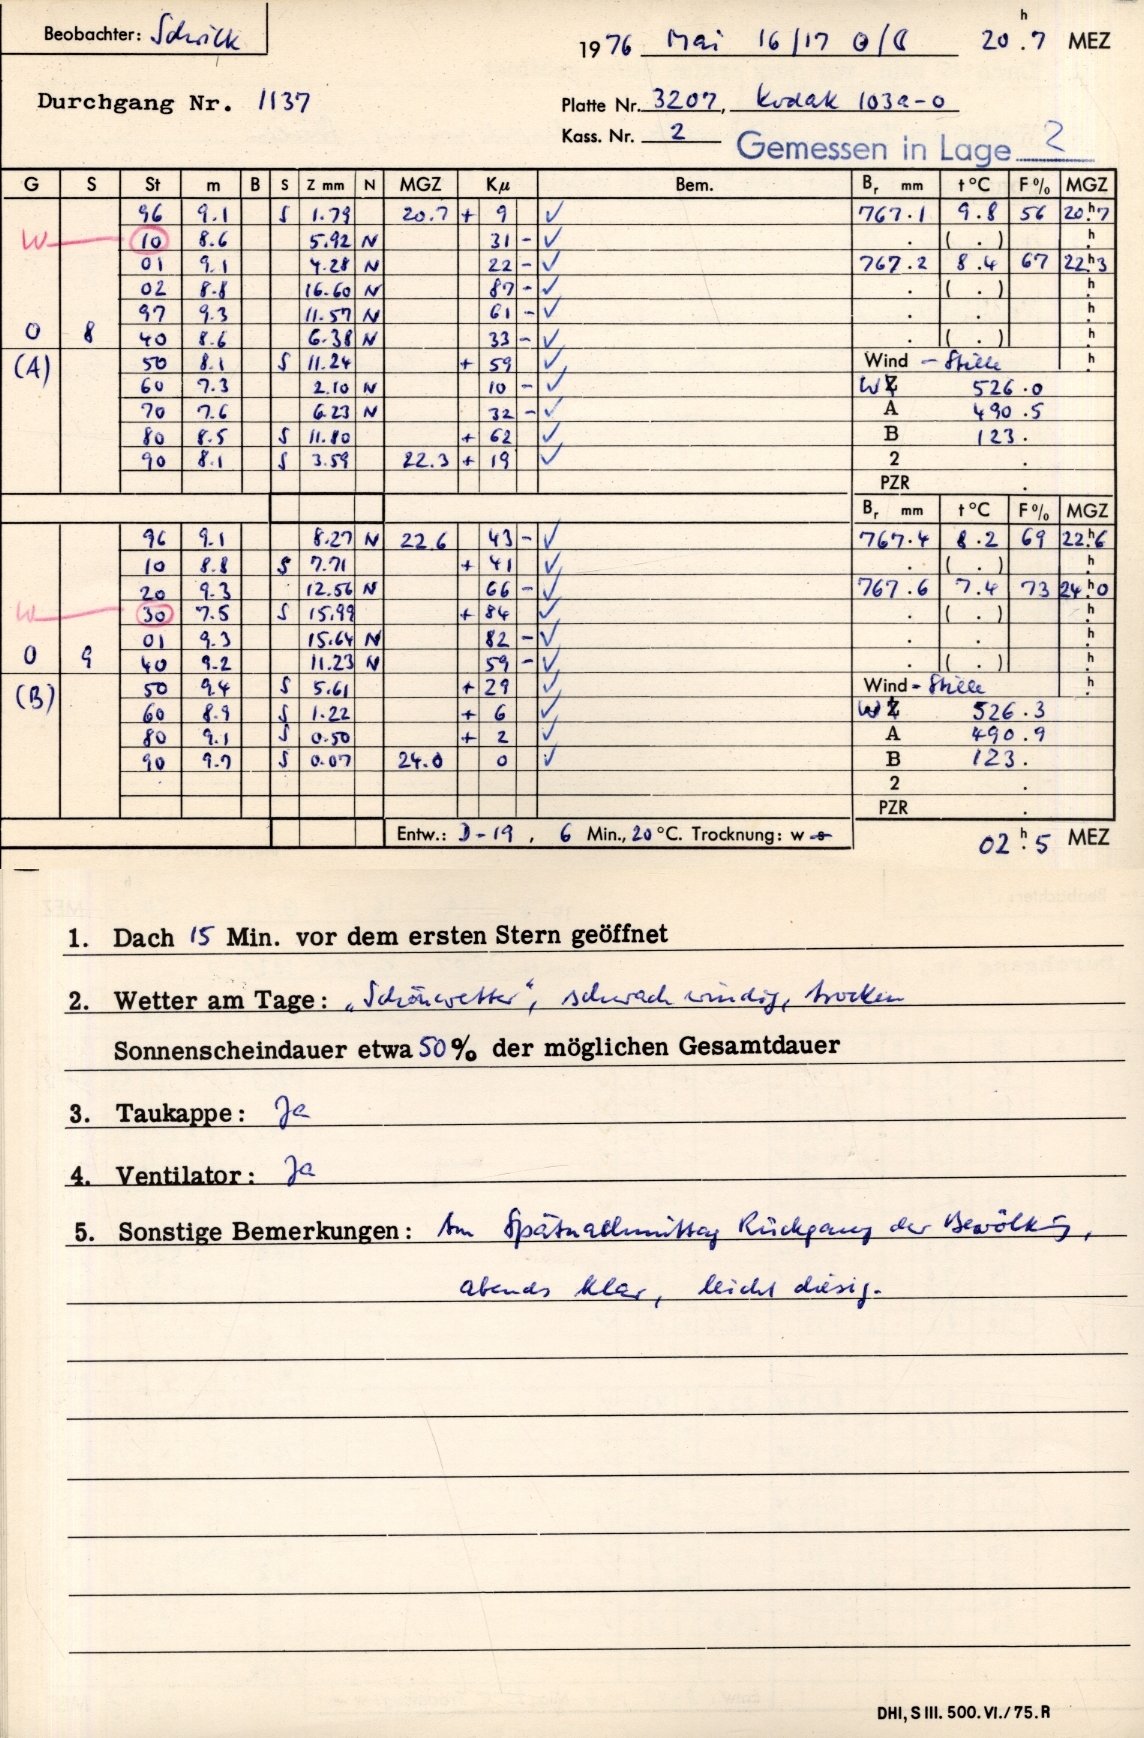 Beobachter: Schrick
1976 Mai 16/17 ☉/☾ 20ʰ.7 MEZ
Durchgang Nr. 1137
Platte Nr. 3207, Kodak 103a-0
Kass. Nr. 2
Gemessen in Lage 2
G S St m B S Z mm N MGZ Kµ Bem. Bᵣ mm t °C F% MGZ
96 9.1 S 1.79 20.7 + 9 ✓ 767.1 9.8 56 20ʰ.7
W 10 8.6 5.92 N 31 - ✓ . ( . ) ʰ.
01 9.1 4.28 N 22 - ✓ 767.2 8.4 67 22ʰ.3
02 8.8 16.60 N 87 - ✓ . ( . ) ʰ.
97 9.3 11.57 N 61 - ✓ . . ʰ.
0 8 40 8.6 6.38 N 33 - ✓ . ( . ) ʰ.
(A) 50 8.1 S 11.24 + 59 ✓ Wind - Stille ʰ.
60 7.3 2.10 N 10 - ✓ WZ 526.0
70 7.6 6.23 N 32 - ✓ A 490.5
80 8.5 S 11.80 + 62 ✓ B 123.
90 8.1 S 3.59 22.3 + 19 ✓ 2 .
PZR .
Bᵣ mm t °C F% MGZ
96 9.1 8.27 N 22.6 43 - ✓ 767.4 8.2 69 22ʰ.6
10 8.8 S 7.71 + 41 ✓ . ( . ) ʰ.
20 9.3 12.56 N 66 - ✓ 767.6 7.4 73 24ʰ.0
W 30 7.5 S 15.99 + 84 ✓ . ( . ) ʰ.
01 9.3 15.64 N 82 - ✓ . . ʰ.
0 9 40 9.2 11.23 N 59 - ✓ . ( . ) ʰ.
(B) 50 9.4 S 5.61 + 29 ✓ Wind - Stille ʰ.
60 8.9 S 1.22 + 6 ✓ WZ 526.3
80 9.1 S 0.50 + 2 ✓ A 490.9
90 9.7 S 0.07 24.0 0 ✓ B 123.
2 .
PZR .
Entw.: D-19, 6 Min., 20 °C. Trocknung: w s
02ʰ.5 MEZ
1. Dach 15 Min. vor dem ersten Stern geöffnet
2. Wetter am Tage: „Schönwetter“, schwach windig, trocken
Sonnenscheindauer etwa 50% der möglichen Gesamtdauer
3. Taukappe: Ja
4. Ventilator: Ja
5. Sonstige Bemerkungen: Am Spätnachmittag Rückgang der Bewölkung,
abends klar, leicht diesig.
DHI, S III. 500. VI./75. R